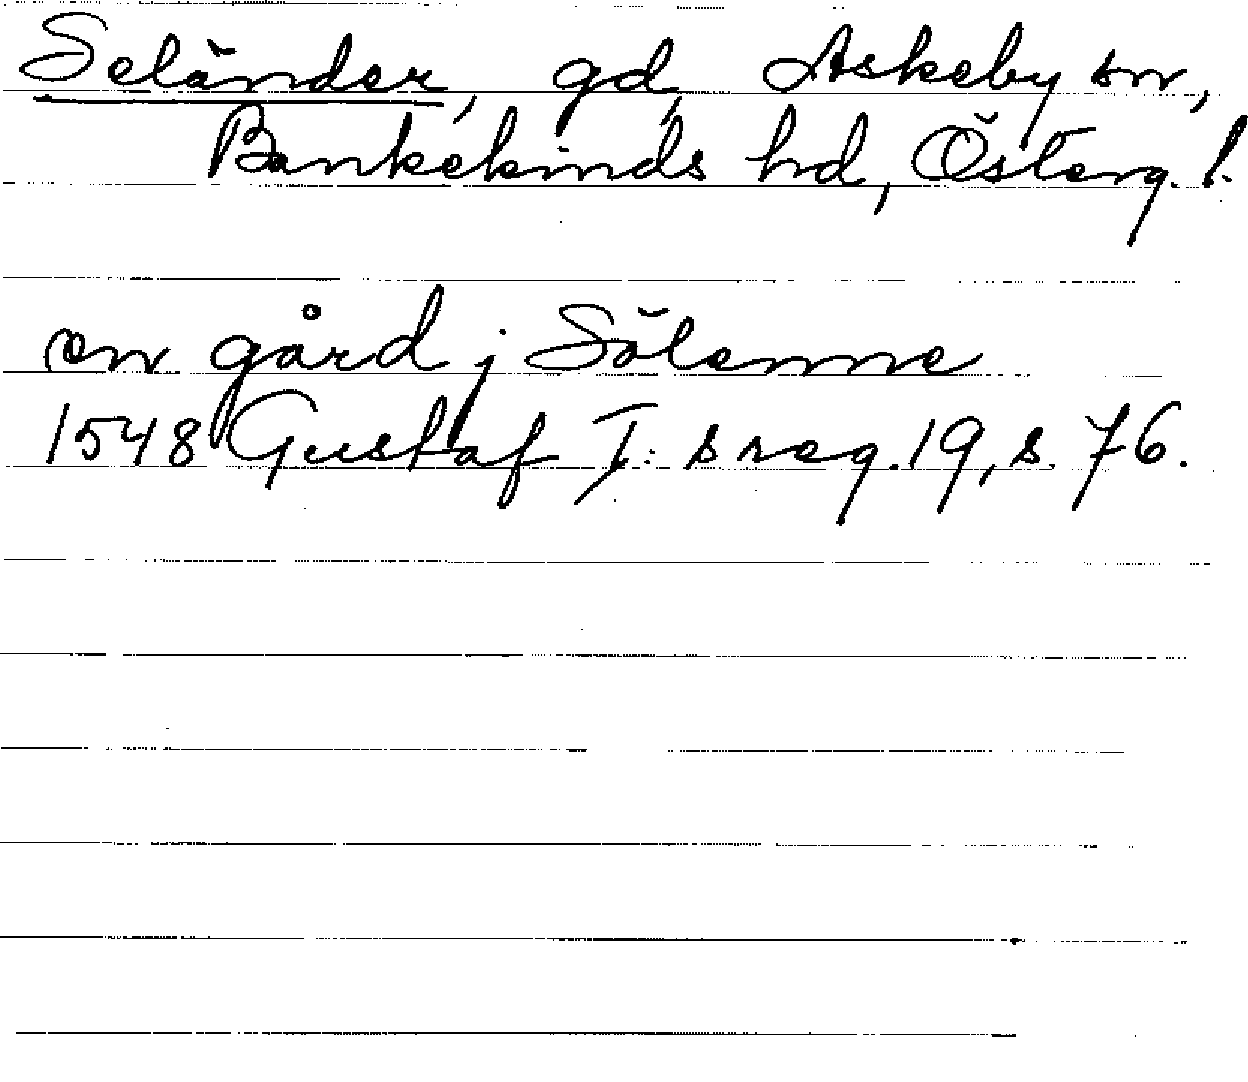 Seländer, gd, Askeby sn,
Bankekinds hd, Österg. l.
en gård j Sölenne
1548 Gustaf I: s reg. 19, s. 76.